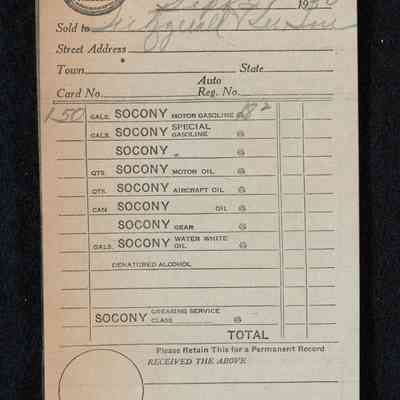 1930
Sold to Fitzgerald
Street Address
Town State
Auto
Card No. Reg. No.
150 GALS. SOCONY MOTOR GASOLINE @ 18 2
GALS. SOCONY SPECIAL GASOLINE @
SOCONY @
QTS. SOCONY MOTOR OIL @
QTS. SOCONY AIRCRAFT OIL @
CAN SOCONY OIL @
SOCONY GEAR @
GALS. SOCONY WATER WHITE OIL @
DENATURED ALCOHOL
SOCONY GREASING SERVICE CLASS
TOTAL
Please Retain This for a Permanent Record
RECEIVED THE ABOVE